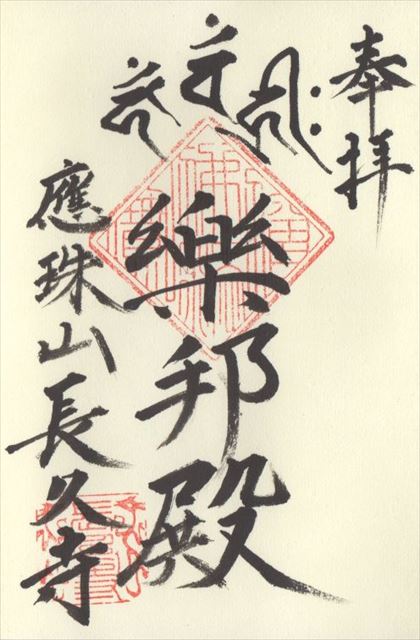 奉拝
樂邦殿
應珠山長久寺